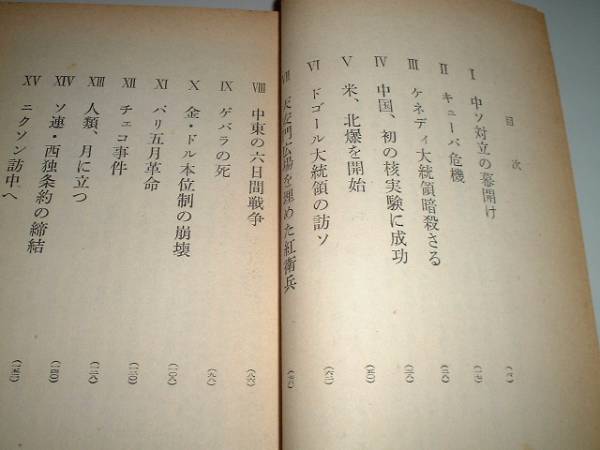 目次
I 中ソ対立の幕開け
II キューバ危機
III ケネディ大統領暗殺さる
IV 中国、初の核実験に成功
V 米、北爆を開始
VI ドゴール大統領の訪ソ
VII 天安門広場を埋めた紅衛兵
VIII 中東の六日間戦争
IX ゲバラの死
X 金・ドル本位制の崩壊
XI パリ五月革命
XII チェコ事件
XIII 人類、月に立つ
XIV ソ連・西独条約の締結
XV ニクソン訪中へ